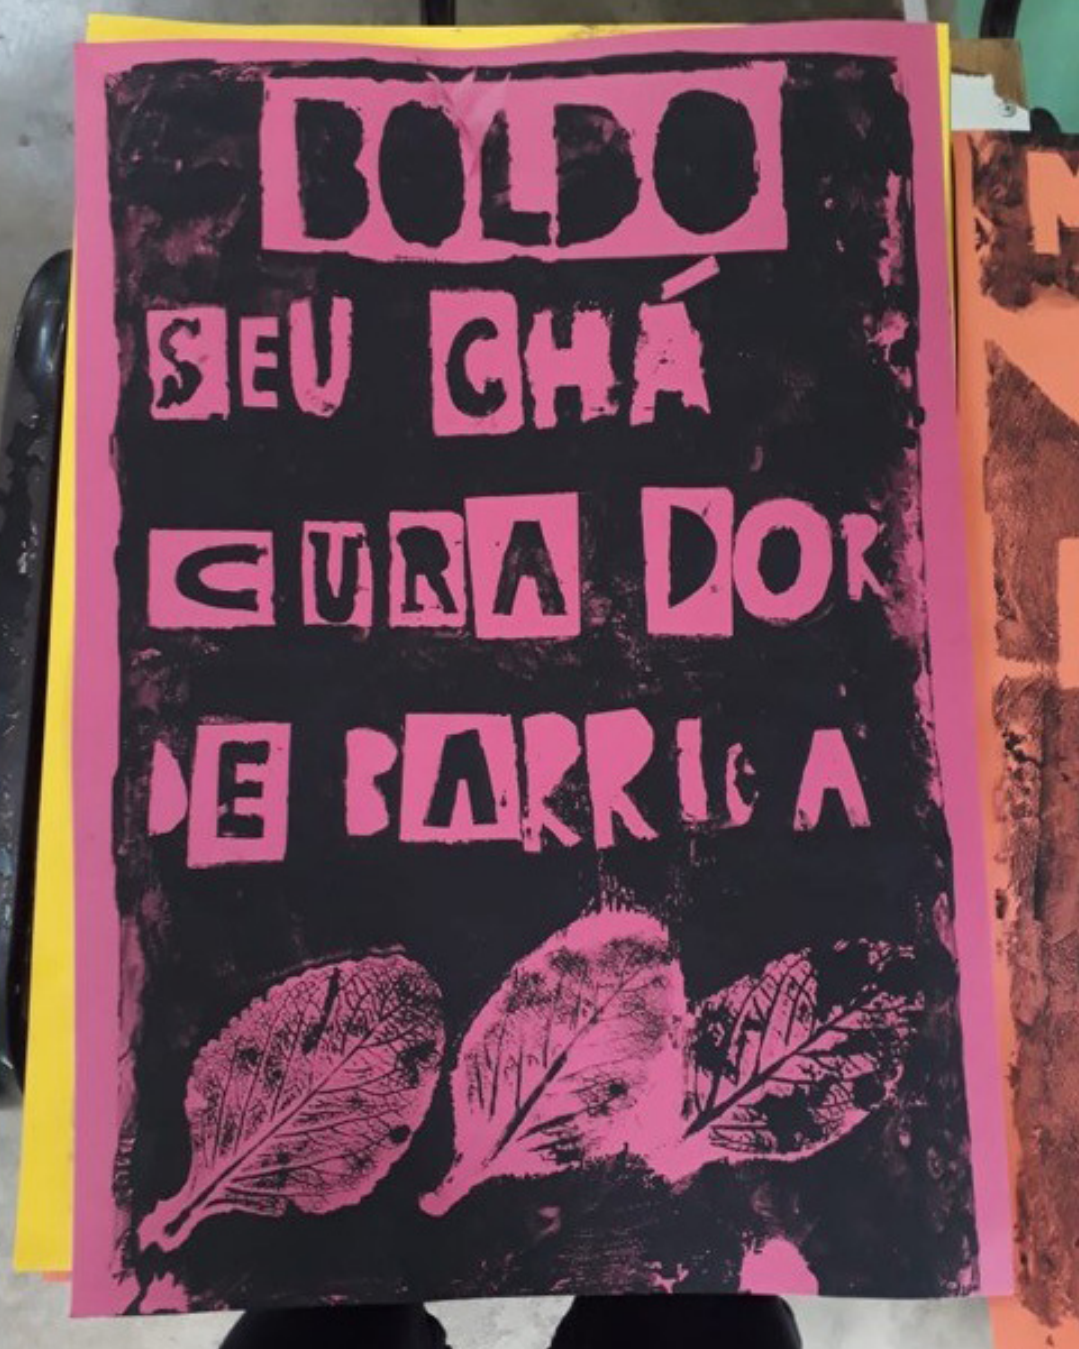 BOLDO
SEU CHÁ
CURA DOR
DE BARRIGA